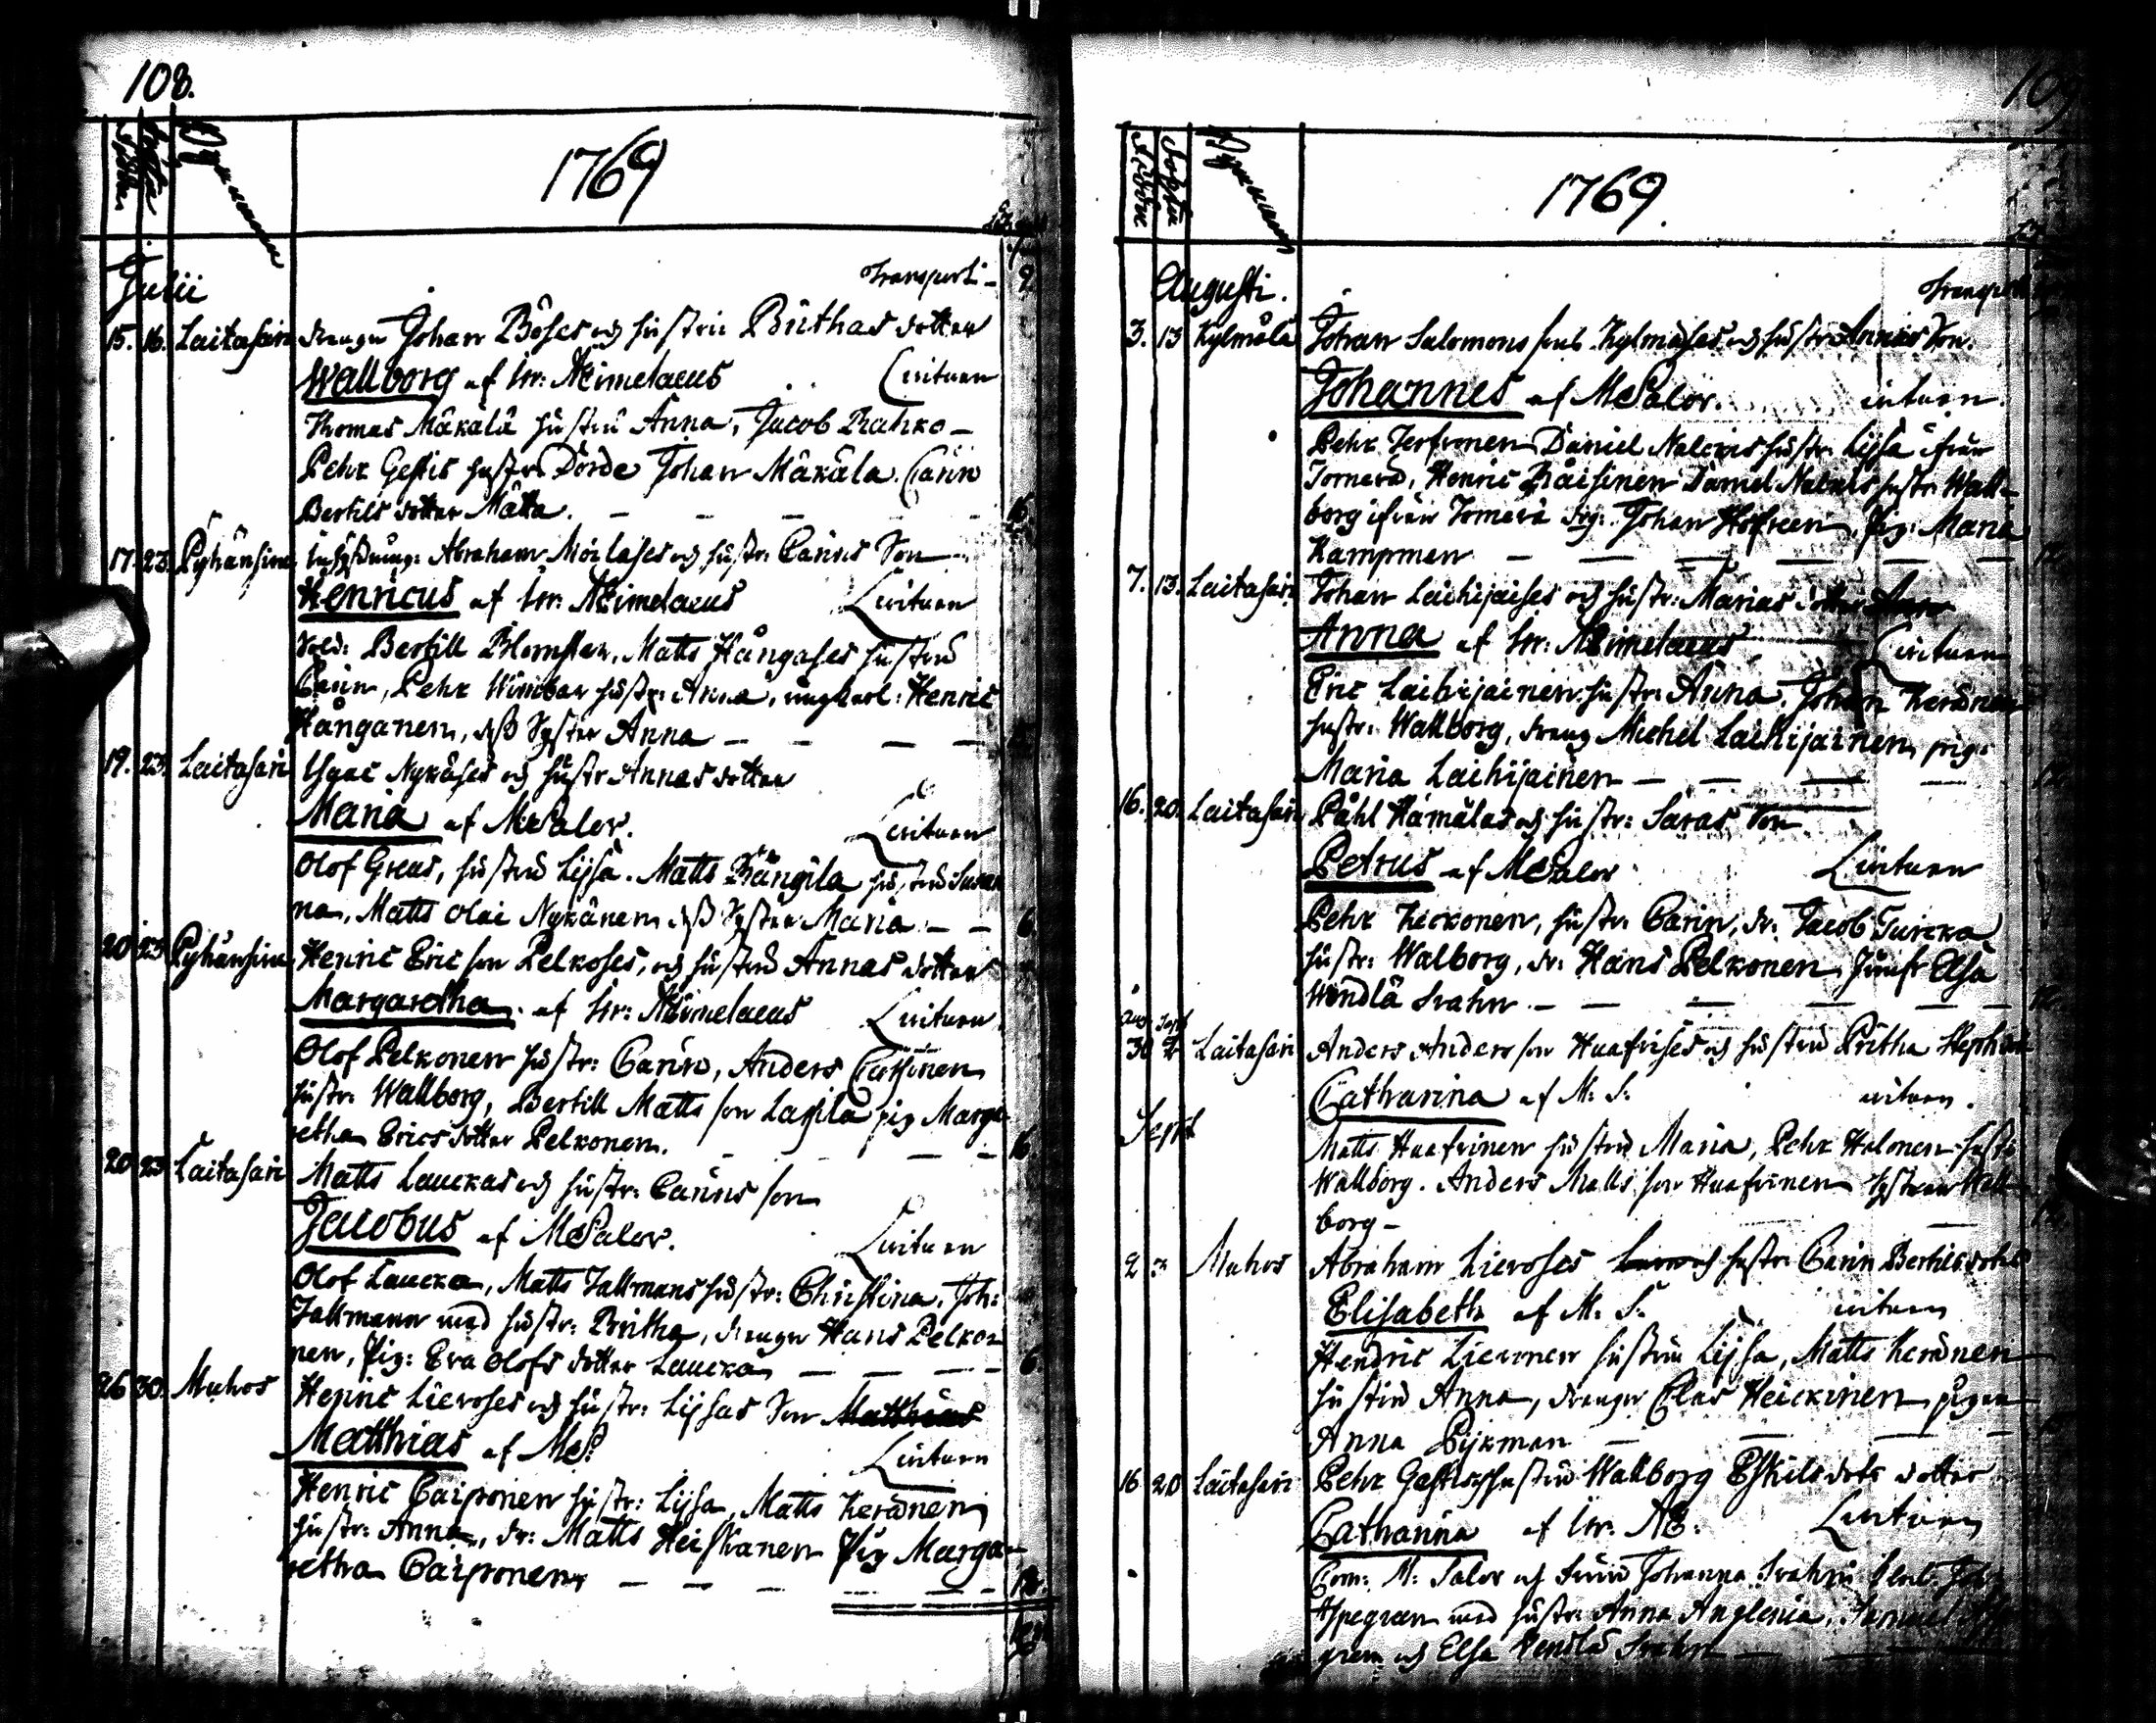 108.
Födde Döpte Byarnann
1769
Julii
Transport - 2
15. 16. Laitasari drengn Johan Böses och hustrus Brithas dotter
Wallborg af hr: Neimelaeus Lintuen
Thomas Mäkälä hustru Anna, Jacob Rahko -
Pehr Gestis hustru Dorde Johan Mäkäla. Carin
Bertils dotter Matta. - - - - 16
17. 23. Pyhänsiwu Abraham Moilases och hustr: Carins Son
Henricus af hr: Neimelaeus Lintuen
Sold: Bertill Blomster, Matts Hångases hustru
Carin, Pehr Wimbar hustr: Anna, ungkarl: Henric
Hånganen, dess Syster Anna - - - -
19. 23. Laitasari Isaac Nykäses och hustr Annas dotter
Maria af M Salov. Lintuen
Olof Greus, hustru Lijsa. Matts Kångila hustru Susan
na, Matts Olai Nykänen dess Syster Maria - - 6.
20 23 Pyhänsiwu Henric Eric son Pelkoses, och hustrus Annas dotter
Margaretha af hr: Neimelaeus Lintuen
Olof Pelkonen hustr: Carin, Anders
hustr: Wallborg, Bertill Matts son Lapila pig Marga
retha Erics dotter Pelkonen. - - - - 16
20 23 Laitasari Matts Lauckas och hustr: Carins son
Jacobus af M Salov. Lintuen
Olof Laucka, Matts Tallmans hustr: Christina, Joh:
Tallmann med hustr: Britha, drengn Hans Pelko
nen, Pig: Eva Olofs dotter Laucka - - - 6
26 30. Muhos Henric Lieroses och hustr: Lijsas Son Matthias
Matthias af MS. Lintuen
Henric Caiponen hustr: Lijsa, Matts Keränen
hustr: Anna, dr: Matts Heiskanen Pig Marga-
retha Caiponen - - - - 12.
109
Födde Döpte Byarnann
1769.
Augusti.
Transport
3. 13 Kylmälä Johan Salomons sons Kylmäses och hustr: Annas Son.
Johannes af M Salov. intuen
Pehr Daniel hustr: Lijsa ifrån
Torneå, Henric Räisinen Daniel hustr: Wall-
borg ifrån Torneå drg: Johan Pig: Maria
Kampman - - - - - 12.
7. 13. Laitasari Johan Laihijaises och hustr: Marias dotter
Anna af hr: Neimelaeus Lintuen
Eric Laihijainen hustr: Anna. Johan Keränen
hustr: Wallborg, dreng Michel Laihijainen, pig:
Maria Laihijainen - - - - 12.
16. 20. Laitasari Påhl Hämälas och hustr: Saras Son
Petrus af M Salov Lintuen
Pehr Keckonen, hustr: Carin, dr: Jacob Turcka
hustr: Walborg, dr: Hans Pelkonen, Jumfr Elsa
Wendla Svahn - - - - - 12.
Aug Sept
30 Laitasari Anders Anders son Huafrises och hustru Britha
Catharina af M. S. intuen.
Sept
Matts Huafrinen hustru Maria, Pehr Halonen hustr
Wallborg. Anders Matts son Huafrinen Systren Wall-
borg - 12.
2 3 Muhos Abraham Lieroses och hustr: Carin Bertils dotter
Elisabeth af M. S. intuen
Hendric Lieronen hustru Lijsa, Matts Keränen
hustru Anna, drengn Clas Heickinen pigan
Anna Bijkman - - - -
16 20 Laitasari Pehr Gestis och hustru Wallborg Eskils dotr dotter
Catharina af hr. N: Lintuen
Com: M: Salov och Johanna Svahn
med hustr: Anna
gren och Elsa Wendla Svahn - -